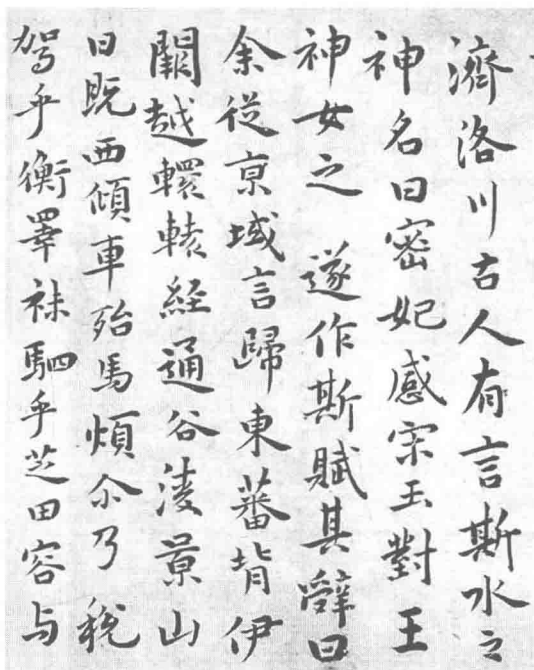 濟洛川古人有言斯水之
神名曰密妃感宋玉對王
神女之 遂作斯賦其辭曰
余從京域言歸東蕃背伊
闕越轘轅經通谷淩景山
日既西傾車殆馬煩尒乃稅
駕乎衡睪秣駟乎芝田容与